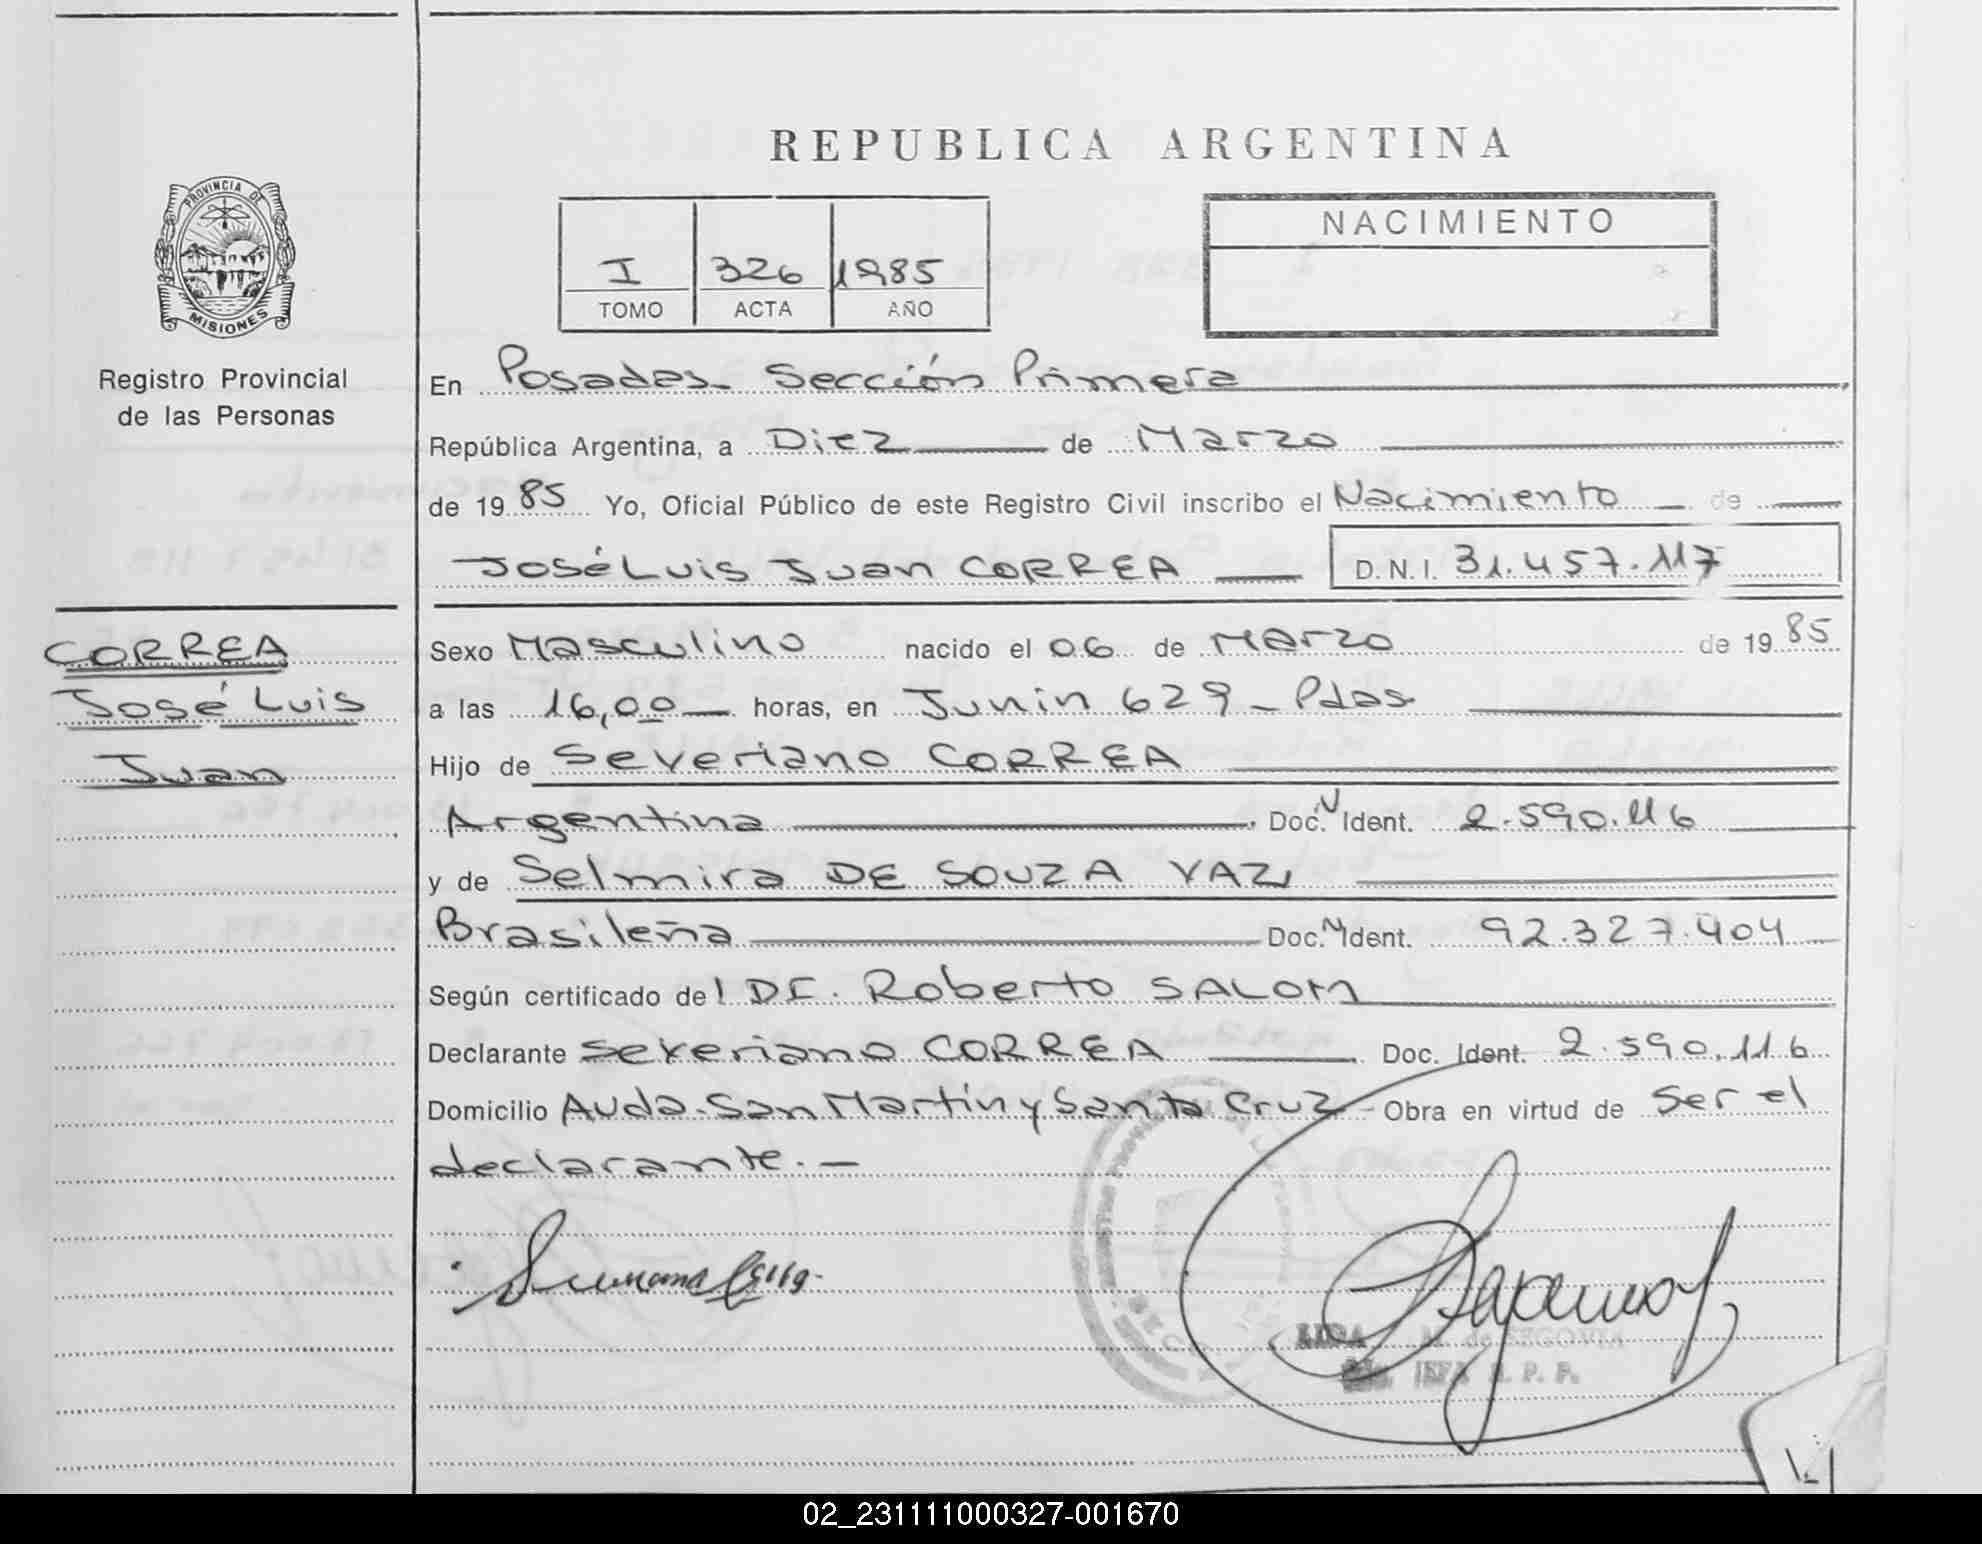 REPUBLICA ARGENTINA
PROVINCIA DE
MISIONES
Registro Provincial
de las Personas
I 326 1985
TOMO ACTA AÑO
NACIMIENTO
En Posadas. Sección Primera
República Argentina, a Diez de Marzo
de 1985 Yo, Oficial Público de este Registro Civil inscribo el Nacimiento de
José Luis Juan CORREA D.N.I. 31.457.117
CORREA
José Luis
Juan
Sexo Masculino nacido el 06 de Marzo de 1985
a las 16,00 horas, en Junin 629 - Pdas
Hijo de Severiano CORREA
Argentina Doc. Ident. 2.590.116
y de Selmira DE SOUZA VAZ
Brasileña Doc. Ident. 92.327.404
Según certificado del Dr. Roberto SALOM
Declarante Severiano CORREA Doc. Ident. 2.590.116
Domicilio Avda. San Martin y Santa Cruz - Obra en virtud de ser el
declarante. -
M. de SEGOVIA
02_231111000327-001670